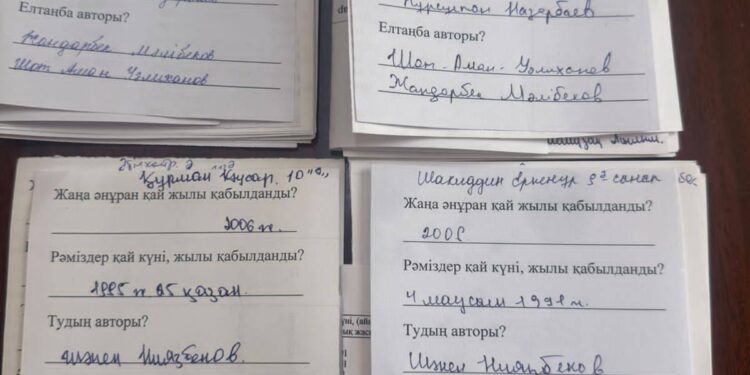 Елтаңба авторы?
Жандарбек Мәлібеков
Шот Аман Уәлиханов
Нұрсұлтан Назарбаев
Елтаңба авторы?
Шот-Аман-Уәлиханов
Жандарбек Мәлібеков
Құрман 10 "
Жаңа әнұран қай жылы қабылданды?
2006 ж.
Рәміздер қай күні, жылы қабылданды?
1995 ж. 25 қазан.
Тудың авторы?
Ниязбеков.
Шахиддин Еркенұр 9 санап
Жаңа әнұран қай жылы қабылданды?
Рәміздер қай күні, жылы қабылданды?
4 маусым 1991 ж.
Тудың авторы?
Ниязбеков